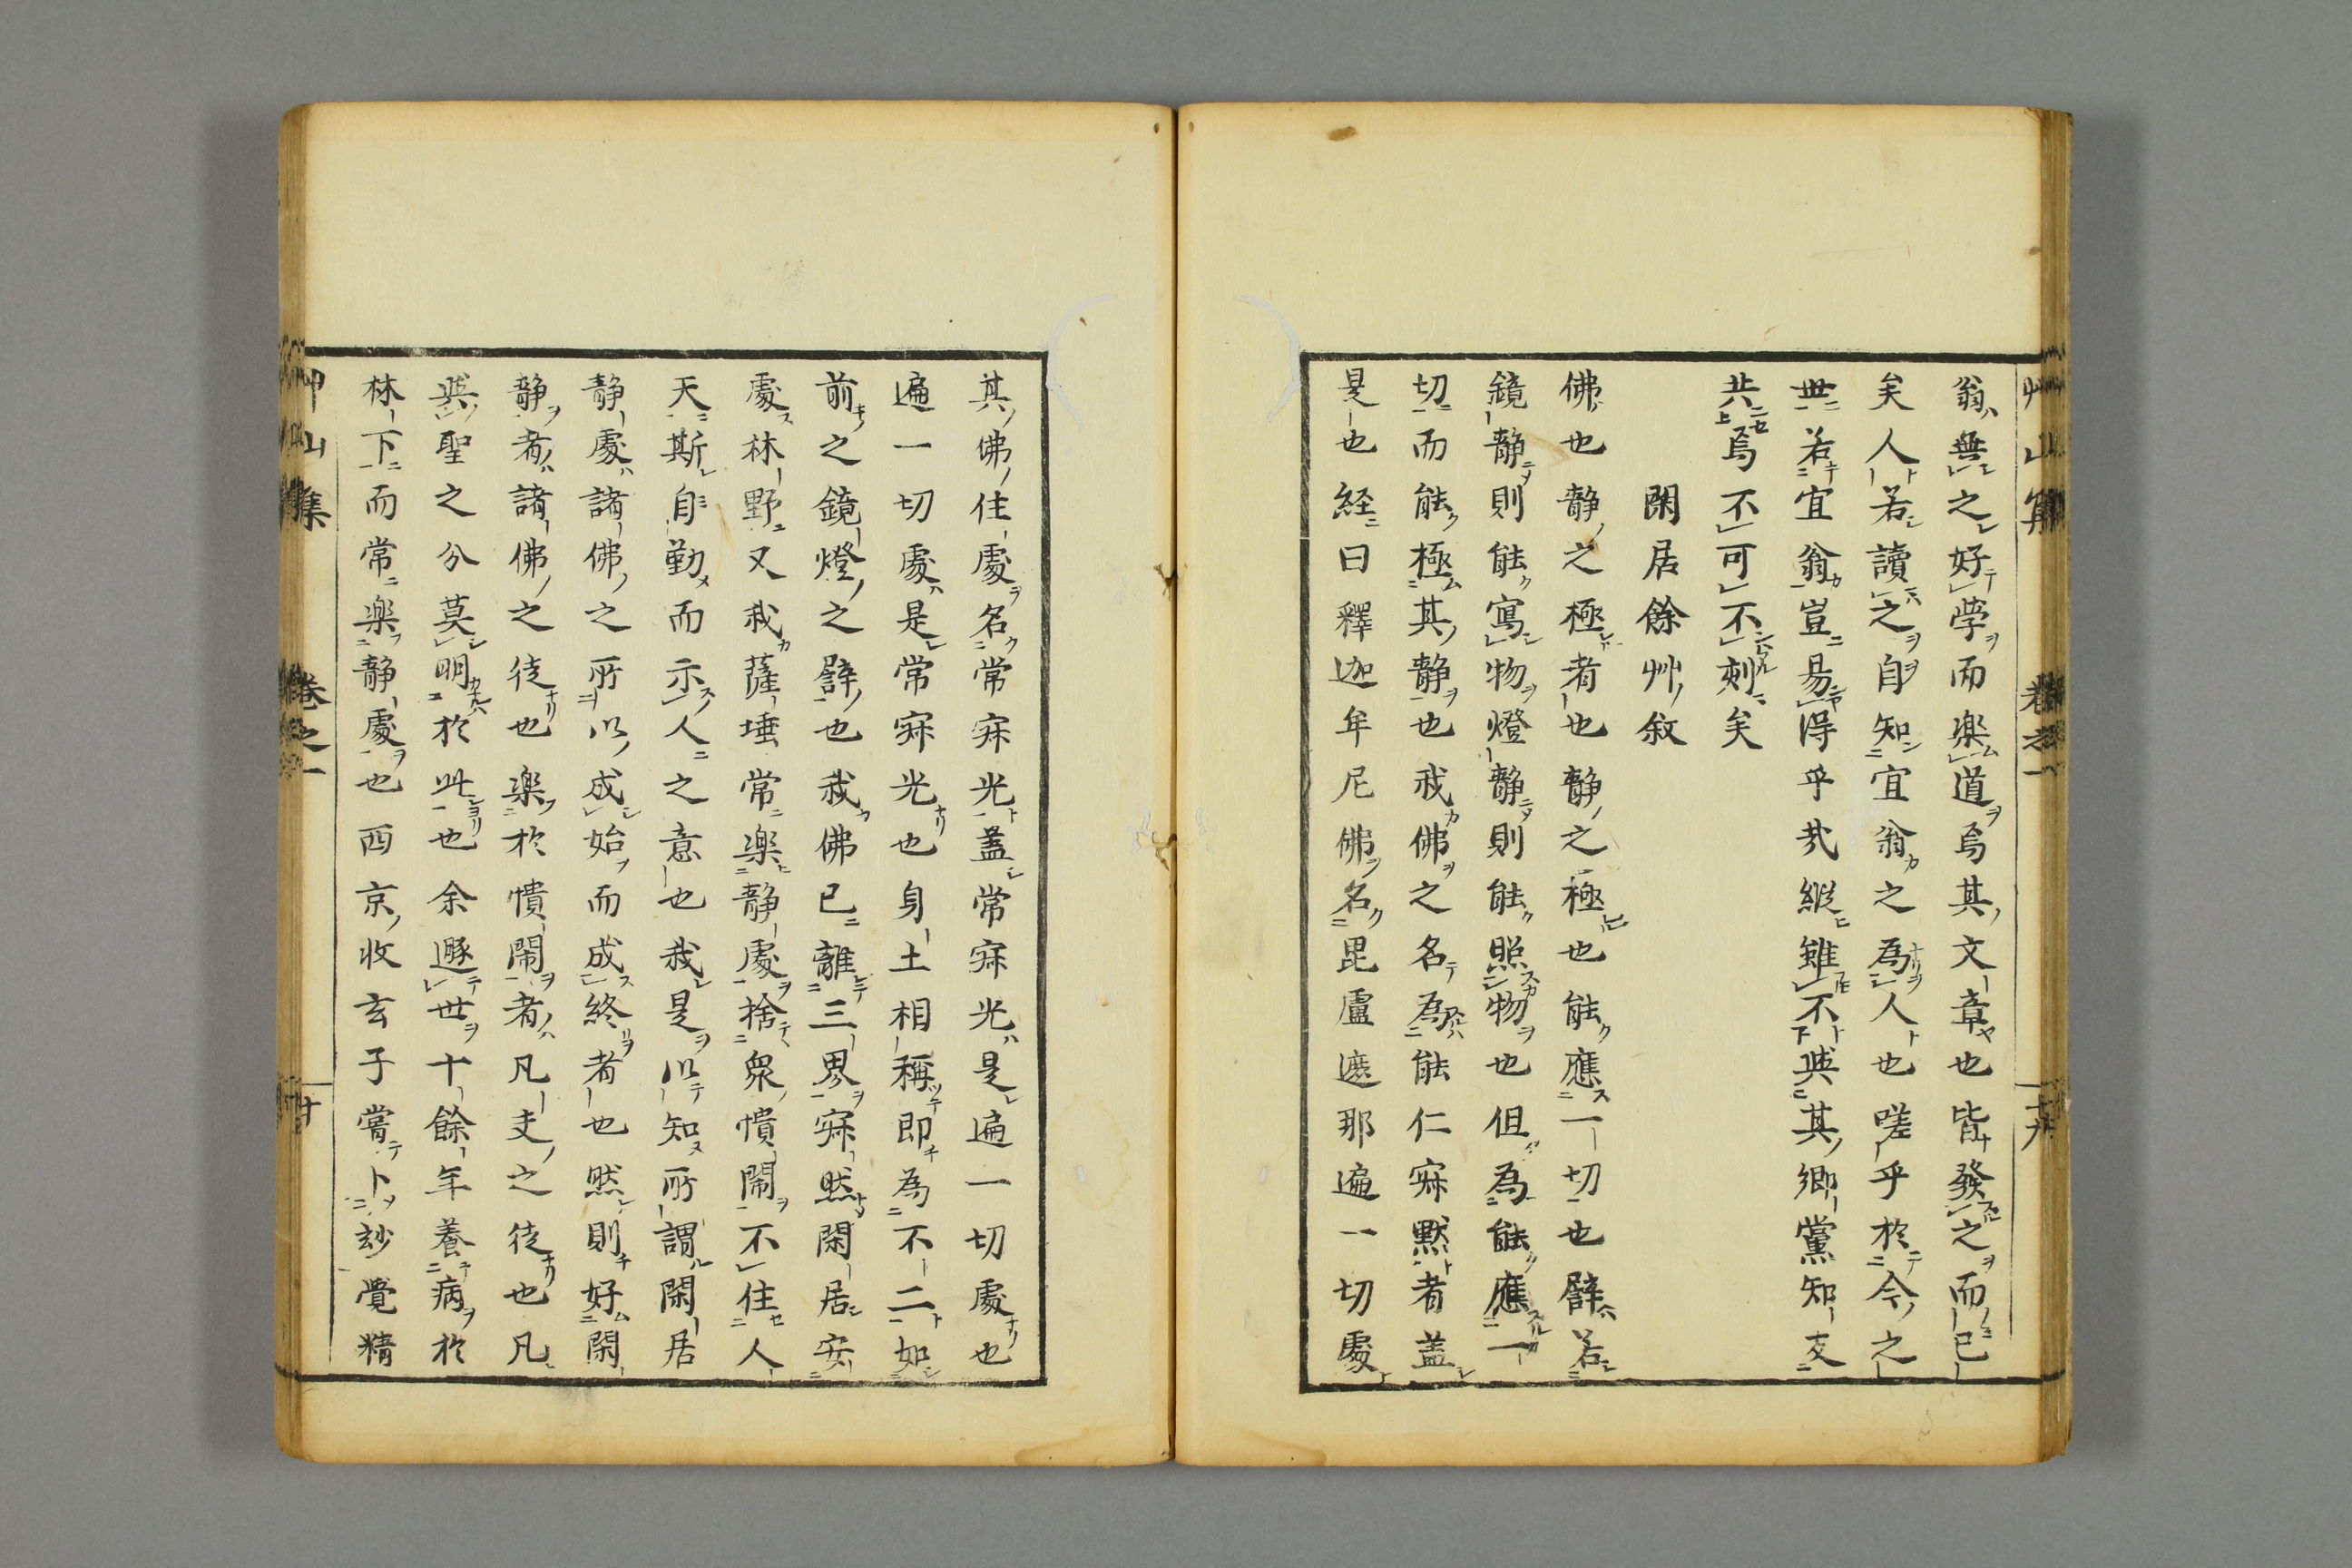 艸山集 卷之一 十九
翁無之好学而楽道焉其文章也皆發之而已
矣人若讀之自知宜翁之為人也嗟乎於今之
世若宜翁豈易得乎㢤縦雖不與其郷黨知友
共焉不可不刻矣
閑居餘艸叙
佛也静之極者也静之極也能應一切也辟若
鏡静則能寫物燈静則能照物也但為能應一
切而能極其静也我佛之名為能仁寂黙者盖
是也経曰釋迦牟尼佛名毘盧遮那遍一切處
其佛住處名常寂光盖常寂光是遍一切處也
遍一切處是常寂光也身土相稱即為不二如
前之鏡燈之辟也我佛已離三界寂然閑居安
處林野又我薩埵常楽静處捨衆憒閙不住人
天斯自勤而示人之意也我是以知所謂閑居
静處諸佛之所以成始而成終者也然則好閑
静者諸佛之徒也楽於憒閙者凡夫之徒也凡
與聖之分莫明於此也余遯世十餘年養病於
林下而常楽静處也西京收玄子嘗卜玅覺精
艸山集 卷之一 廿